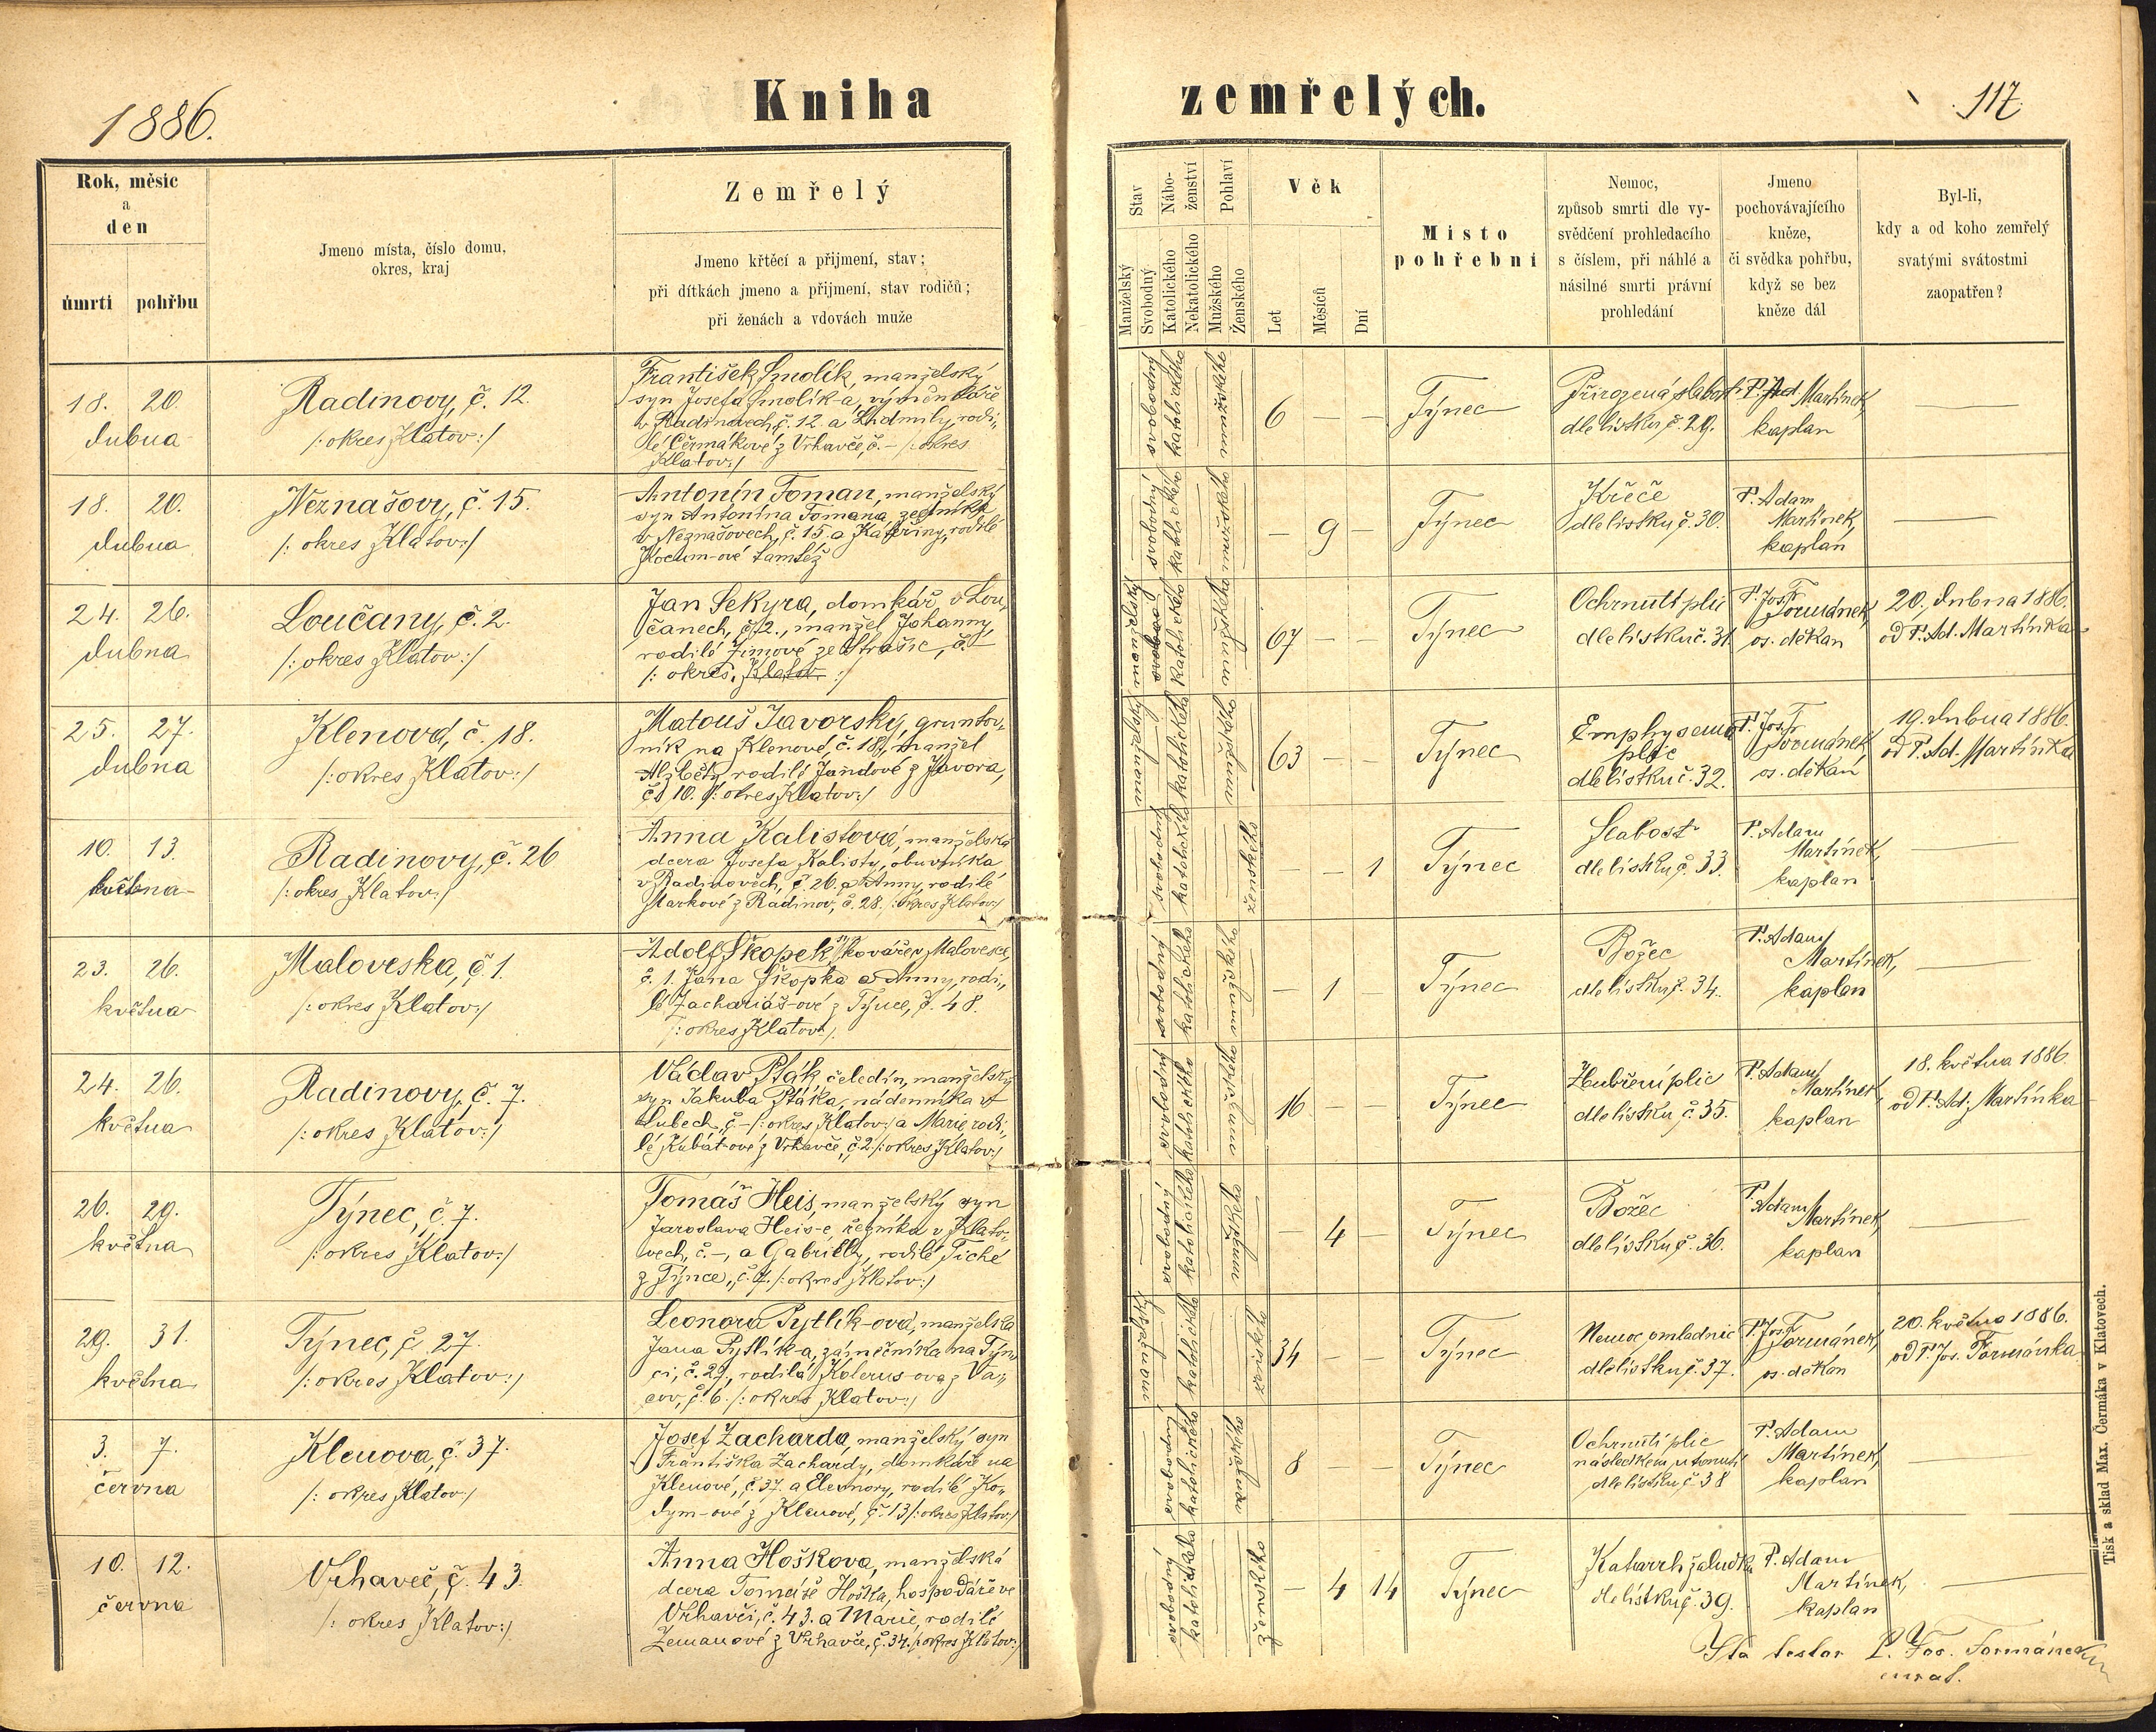 1886.
Kniha zemřelých.
117.
Rok, měsíc
a
den
úmrtí
pohřbu
Jmeno místa, číslo domu,
okres, kraj
Zemřelý
Jmeno křtěcí a přijmení, stav;
při dítkách jmeno a přijmení, stav rodičů;
při ženách a vdovách muže
Stav
Manželský
Svobodný
Nábo-
ženství
Katolického
Nekatolického
Pohlaví
Mužského
Ženského
Věk
Let
Měsíců
Dní
Místo
pohřební
Nemoc,
způsob smrti dle vy-
svědčení prohledacího
s číslem, při náhlé a
násilné smrti právní
prohledání
Jmeno
pochovávajícího
kněze,
či svědka pohřbu,
když se bez
kněze dál
Byl-li,
kdy a od koho zemřelý
svatými svátostmi
zaopatřen?
18. 20.
dubna
Radinovy, č. 12.
/: okres Klatov :/
František Smolík, manželský
syn Josefa Smolík-a, výměnkáře
v Radinovech, č. 12. a Ludmily, rodi„
lé Čermákové z Vrhavče, č. – /: okres
Klatov :/
svobodný
katolického
mužského
6 — —
Týnec
Přirozená slabost
dle lístku č. 29.
P. Ad. Martínek,
kaplan
—
18. 20.
dubna
Neznašovy, č. 15.
/: okres Klatov :/
Antonín Toman, manželský
syn Antonína Tomana, zedníka
v Neznašovech, č. 15. a Kateřiny, rodilé
Kocum-ové tamtéž
svobodný
katolického
mužského
— 9 —
Týnec
Křeče
dle lístku č. 30.
P. Adam
Martínek,
kaplan
—
24. 26.
dubna
Loučany, č. 2.
/: okres Klatov :/
Jan Sekyra, domkář v Lou„
čanech, č. 2., manžel Johanny,
rodilé Zimové ze Strašic, č. –
/: okres Klatov :/
manželský
katolického
mužského
67 — —
Týnec
Ochrnutí plic
dle lístku č. 31.
P. Jos. Formánek,
os. děkan
20. dubna 1886.
od P. Ad. Martínka
25. 27.
dubna
Klenová, č. 18.
/: okres Klatov :/
Matouš Javorský, gruntov„
ník na Klenové, č. 18., manžel
Alžběty, rodilé Jandové z Javora,
č. 10. /: okres Klatov :/
manželský
katolického
mužského
63 — —
Týnec
Emphysema
plic
dle lístku č. 32.
P. Jos. Formánek,
os. děkan
19. dubna 1886.
od P. Ad. Martínka
10. 13.
května
Radinovy, č. 26
/: okres Klatov :/
Anna Kalistová, manželská
dcera Josefa Kalisty, obuvníka
v Radinovech, č. 26. a Anny, rodilé
Markové z Radinov, č. 28. /: okres Klatov :/
svobodný
katolického
ženského
— — 1
Týnec
Slabost
dle lístku č. 33.
P. Adam
Martínek,
kaplan
—
23. 26.
května
Maloveska, č. 1.
/: okres Klatov :/
Adolf Škopek, kováře v Malovesce,
č. 1. Jana Škopka a Anny, rodi„
lé Zachariáš-ové z Týnce, č. 48.
/: okres Klatov :/
svobodný
katolického
mužského
— 1 —
Týnec
Božec
dle lístku č. 34.
P. Adam
Martínek,
kaplan
—
24. 26.
května
Radinovy, č. 7.
/: okres Klatov :/
Václav Pták, čeledín, manželský
syn Jakuba Ptáka, nádenníka v
Lubech, č. – /: okres Klatov :/ a Marie rodi„
lé Kubát-ové z Vrhavče, č. 2 /: okres Klatov :/
svobodný
katolického
mužského
16 — —
Týnec
Zhubření plic
dle lístku č. 35.
P. Adam
Martínek,
kaplan
18. května 1886.
od P. Ad. Martínka
26. 29.
května
Týnec, č. 7.
/: okres Klatov :/
Tomáš Heis, manželský syn
Jaroslava Heis-e, řezníka v Klato„
vech, č. –, a Gabrielly, rodilé Tiché
z Týnce, č. 7. /: okres Klatov :/
svobodný
katolického
mužského
— 4 —
Týnec
Božec
dle lístku č. 36.
P. Adam
Martínek,
kaplan
—
29. 31.
května
Týnec, č. 27.
/: okres Klatov :/
Leonora Pytlík-ová, manželka
Jana Pytlík-a, zámečníka na Týn„
ci, č. 29., rodilá Kolerus-ova z Va„
cov, č. 6. /: okres Klatov :/
manželský
katolického
ženského
34 — —
Týnec
Nemoc omladnic
dle lístku č. 37.
P. Jos. Formánek,
os. děkan
20. května 1886.
od P. Jos. Formánka
3. 7.
června
Klenova, č. 37.
/: okres Klatov :/
Josef Zacharda, manželský syn
Františka Zachardy, domkáře na
Klenové, č. 37. a Eleonory, rodilé Ko„
dym-ové z Klenové, č. 13 /: okres Klatov :/
svobodný
katolického
mužského
8 — —
Týnec
Ochrnutí plic
následkem utonutí
dle lístku č. 38
P. Adam
Martínek,
kaplan
—
10. 12.
června
Vrhaveč, č. 43.
/: okres Klatov :/
Anna Hoškova, manželská
dcera Tomáše Hoška, hospodáře ve
Vrhavči, č. 43. a Marie, rodilé
Zemanové z Vrhavče, č. 34. /: okres Klatov :/
svobodný
katolického
ženského
— 4 14
Týnec
Katarrh žaludku
dle lístku č. 39.
P. Adam
Martínek,
kaplan
—
Ita testor P. Jos. Formánek
Tisk a sklad Max. Čermáka v Klatovech.